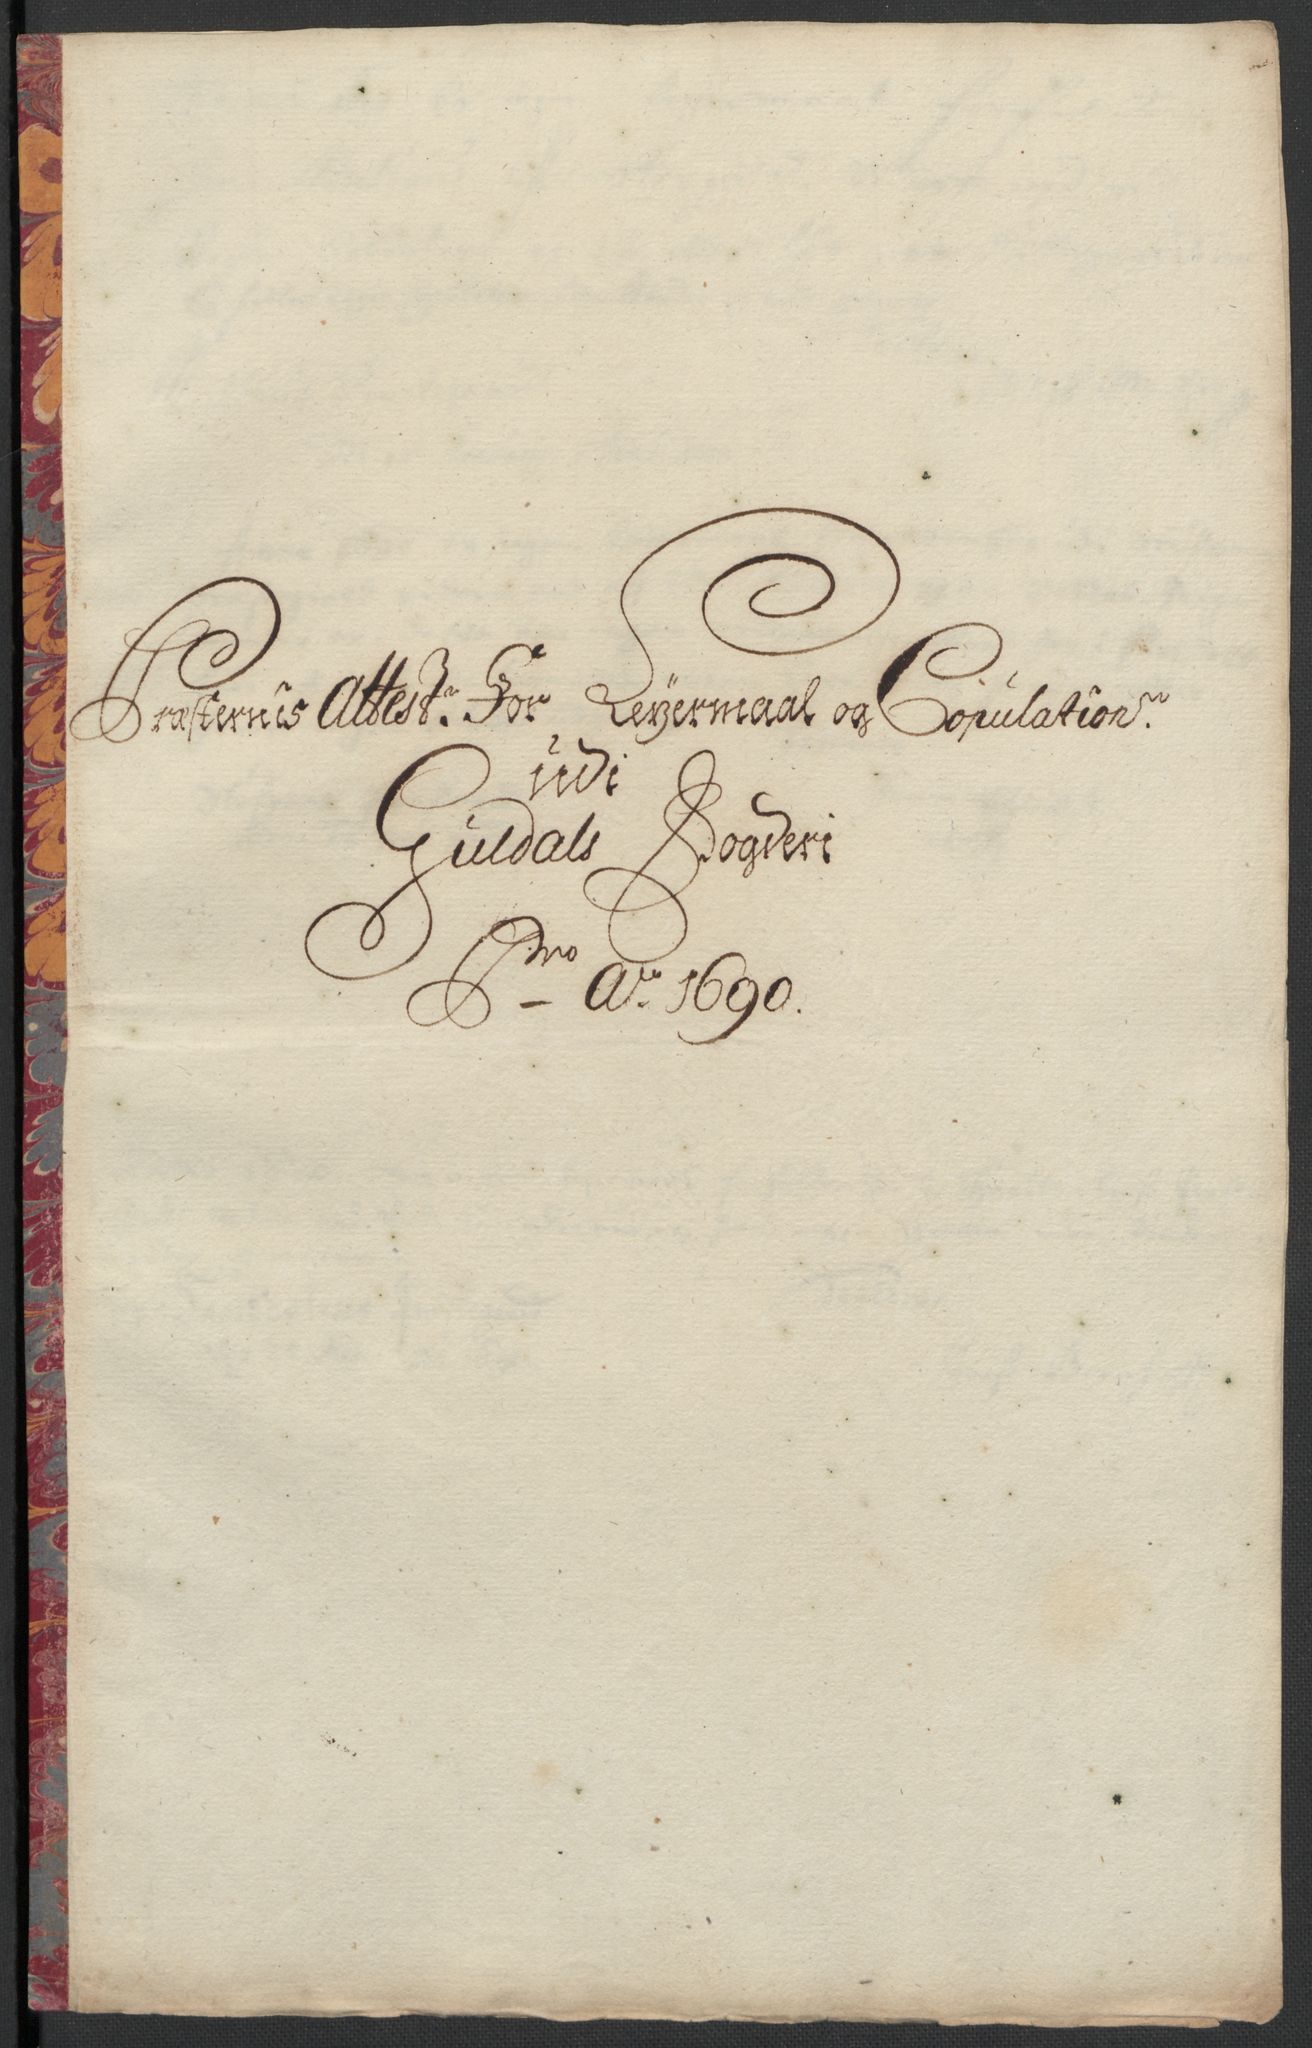 Præsternis Attestr. For Leÿermaal og Copulationr.
udi
Guldals Fogderi
Pro Ao. 1690.